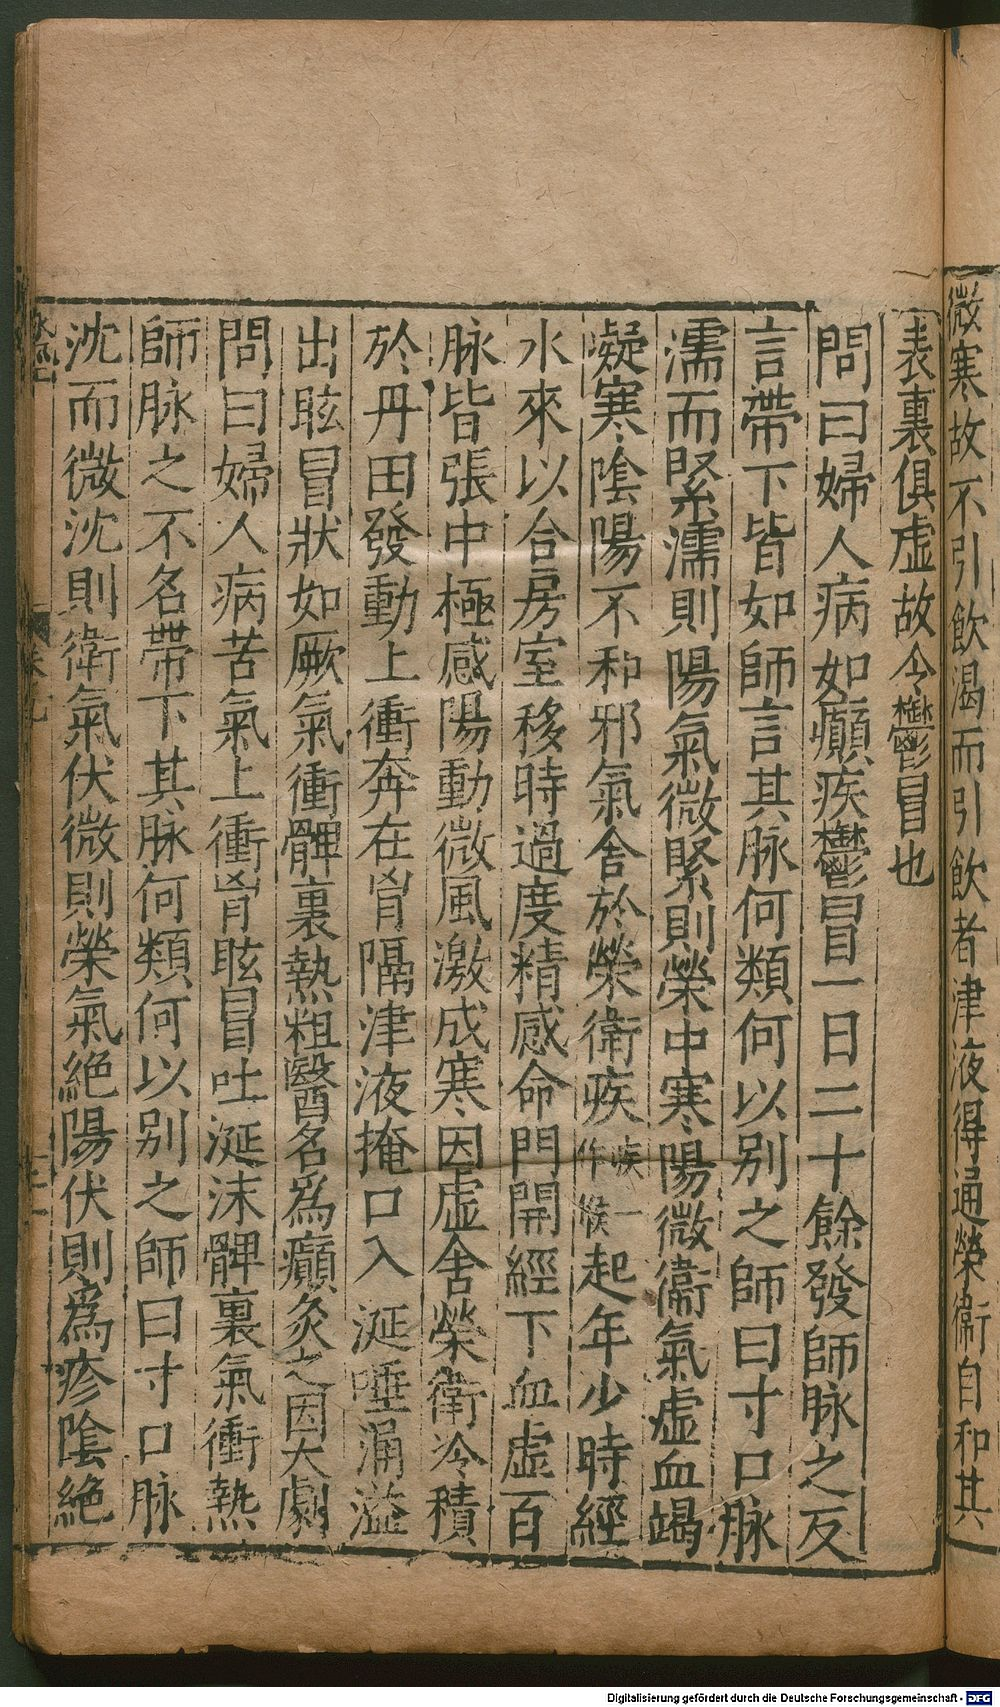 微寒故不引飲渴而引飲者津液得通榮衛自和其
表裏俱虛故令鬱冒也
問曰婦人病如癲疾鬱冒一日二十餘發師脉之反
言帶下皆如師言其脉何類何以別之師曰寸口脉
濡而緊濡則陽氣微緊則榮中寒陽微衛氣虛血竭
凝寒陰陽不和邪氣舍於榮衛疾疾一作候起年少時經
水來以合房室移時過度精感命門開經下血虛百
脉皆張中極感陽動微風激成寒因虛舍榮衛冷積
於丹田發動上衝奔在胷隔津液掩口入涎唾涌溢
出眩冒狀如厥氣衝髀裏熱粗醫名爲癲灸之因大劇
問曰婦人病苦氣上衝胷眩冒吐涎沫髀裏氣衝熱
師脉之不名帶下其脉何類何以別之師曰寸口脉
沈而微沈則衛氣伏微則榮氣絶陽伏則爲疹陰絶
Digitalisierung gefördert durch die Deutsche Forschungsgemeinschaft - DFG